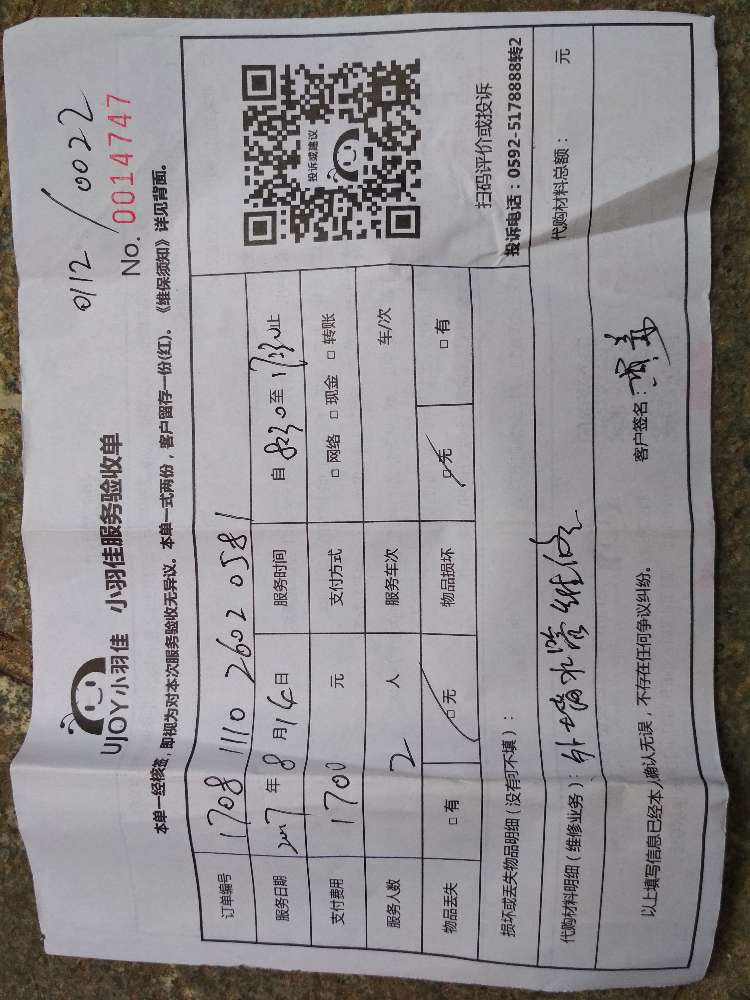 0112/0022
No. 0014747
UJOY小羽佳 小羽佳服务验收单
本单一经核签,即视为对本次服务验收无异议。本单一式两份,客户留存一份(红)。《维保须知》详见背面。
订单编号 1708 1110 2602 0581
服务日期 2017年8月14日 服务时间 自8:30至17:30止
支付费用 1700 元 支付方式 □网络 □现金 □转账
服务人数 2 人 服务车次 车/次
物品丢失 □有 □无 物品损坏 □无 □有
投诉或建议
扫码评价或投诉
投诉电话:0592-5178888转2
损坏或丢失物品明细(没有可不填):
代购材料明细(维修业务):外墙水管维修 代购材料总额: 元
以上填写信息已经本人确认无误,不存在任何争议纠纷。 客户签名: